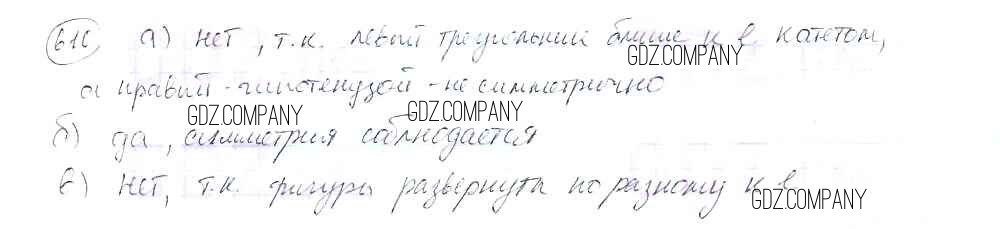 616 а) нет, т.к. левый треугольник ближе к l катетом,
GDZ.COMPANY
а правый - гипотенузой - не симметрично
GDZ.COMPANY GDZ.COMPANY
б) да, симметрия соблюдается
в) нет, т.к. фигуры развернуты по разному к l
GDZ.COMPANY